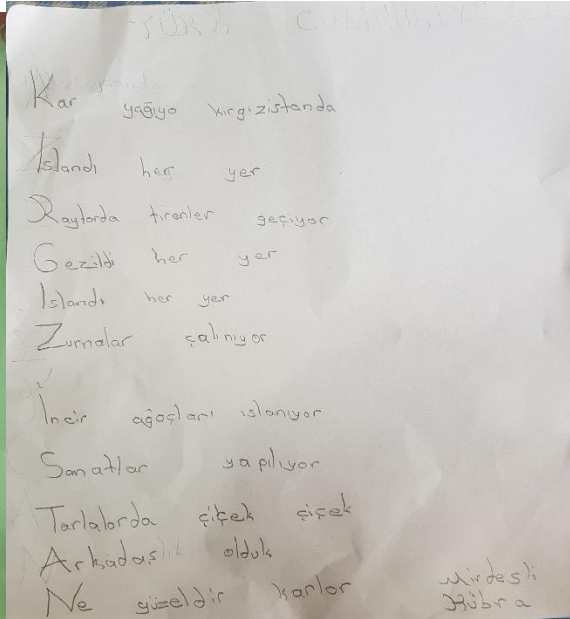 TÜRK
Kar yağıyo kırgızistanda
Islandı her yer
Raylarda tirenler geçiyor
Gezildi her yer
Islandı her yer
Zurnalar çalınıyor
İncir ağaçları ıslanıyor
Sanatlar yapılıyor
Tarlalarda çiçek çiçek
Arkadaşlık olduk
Ne güzeldir karlar
Kübra